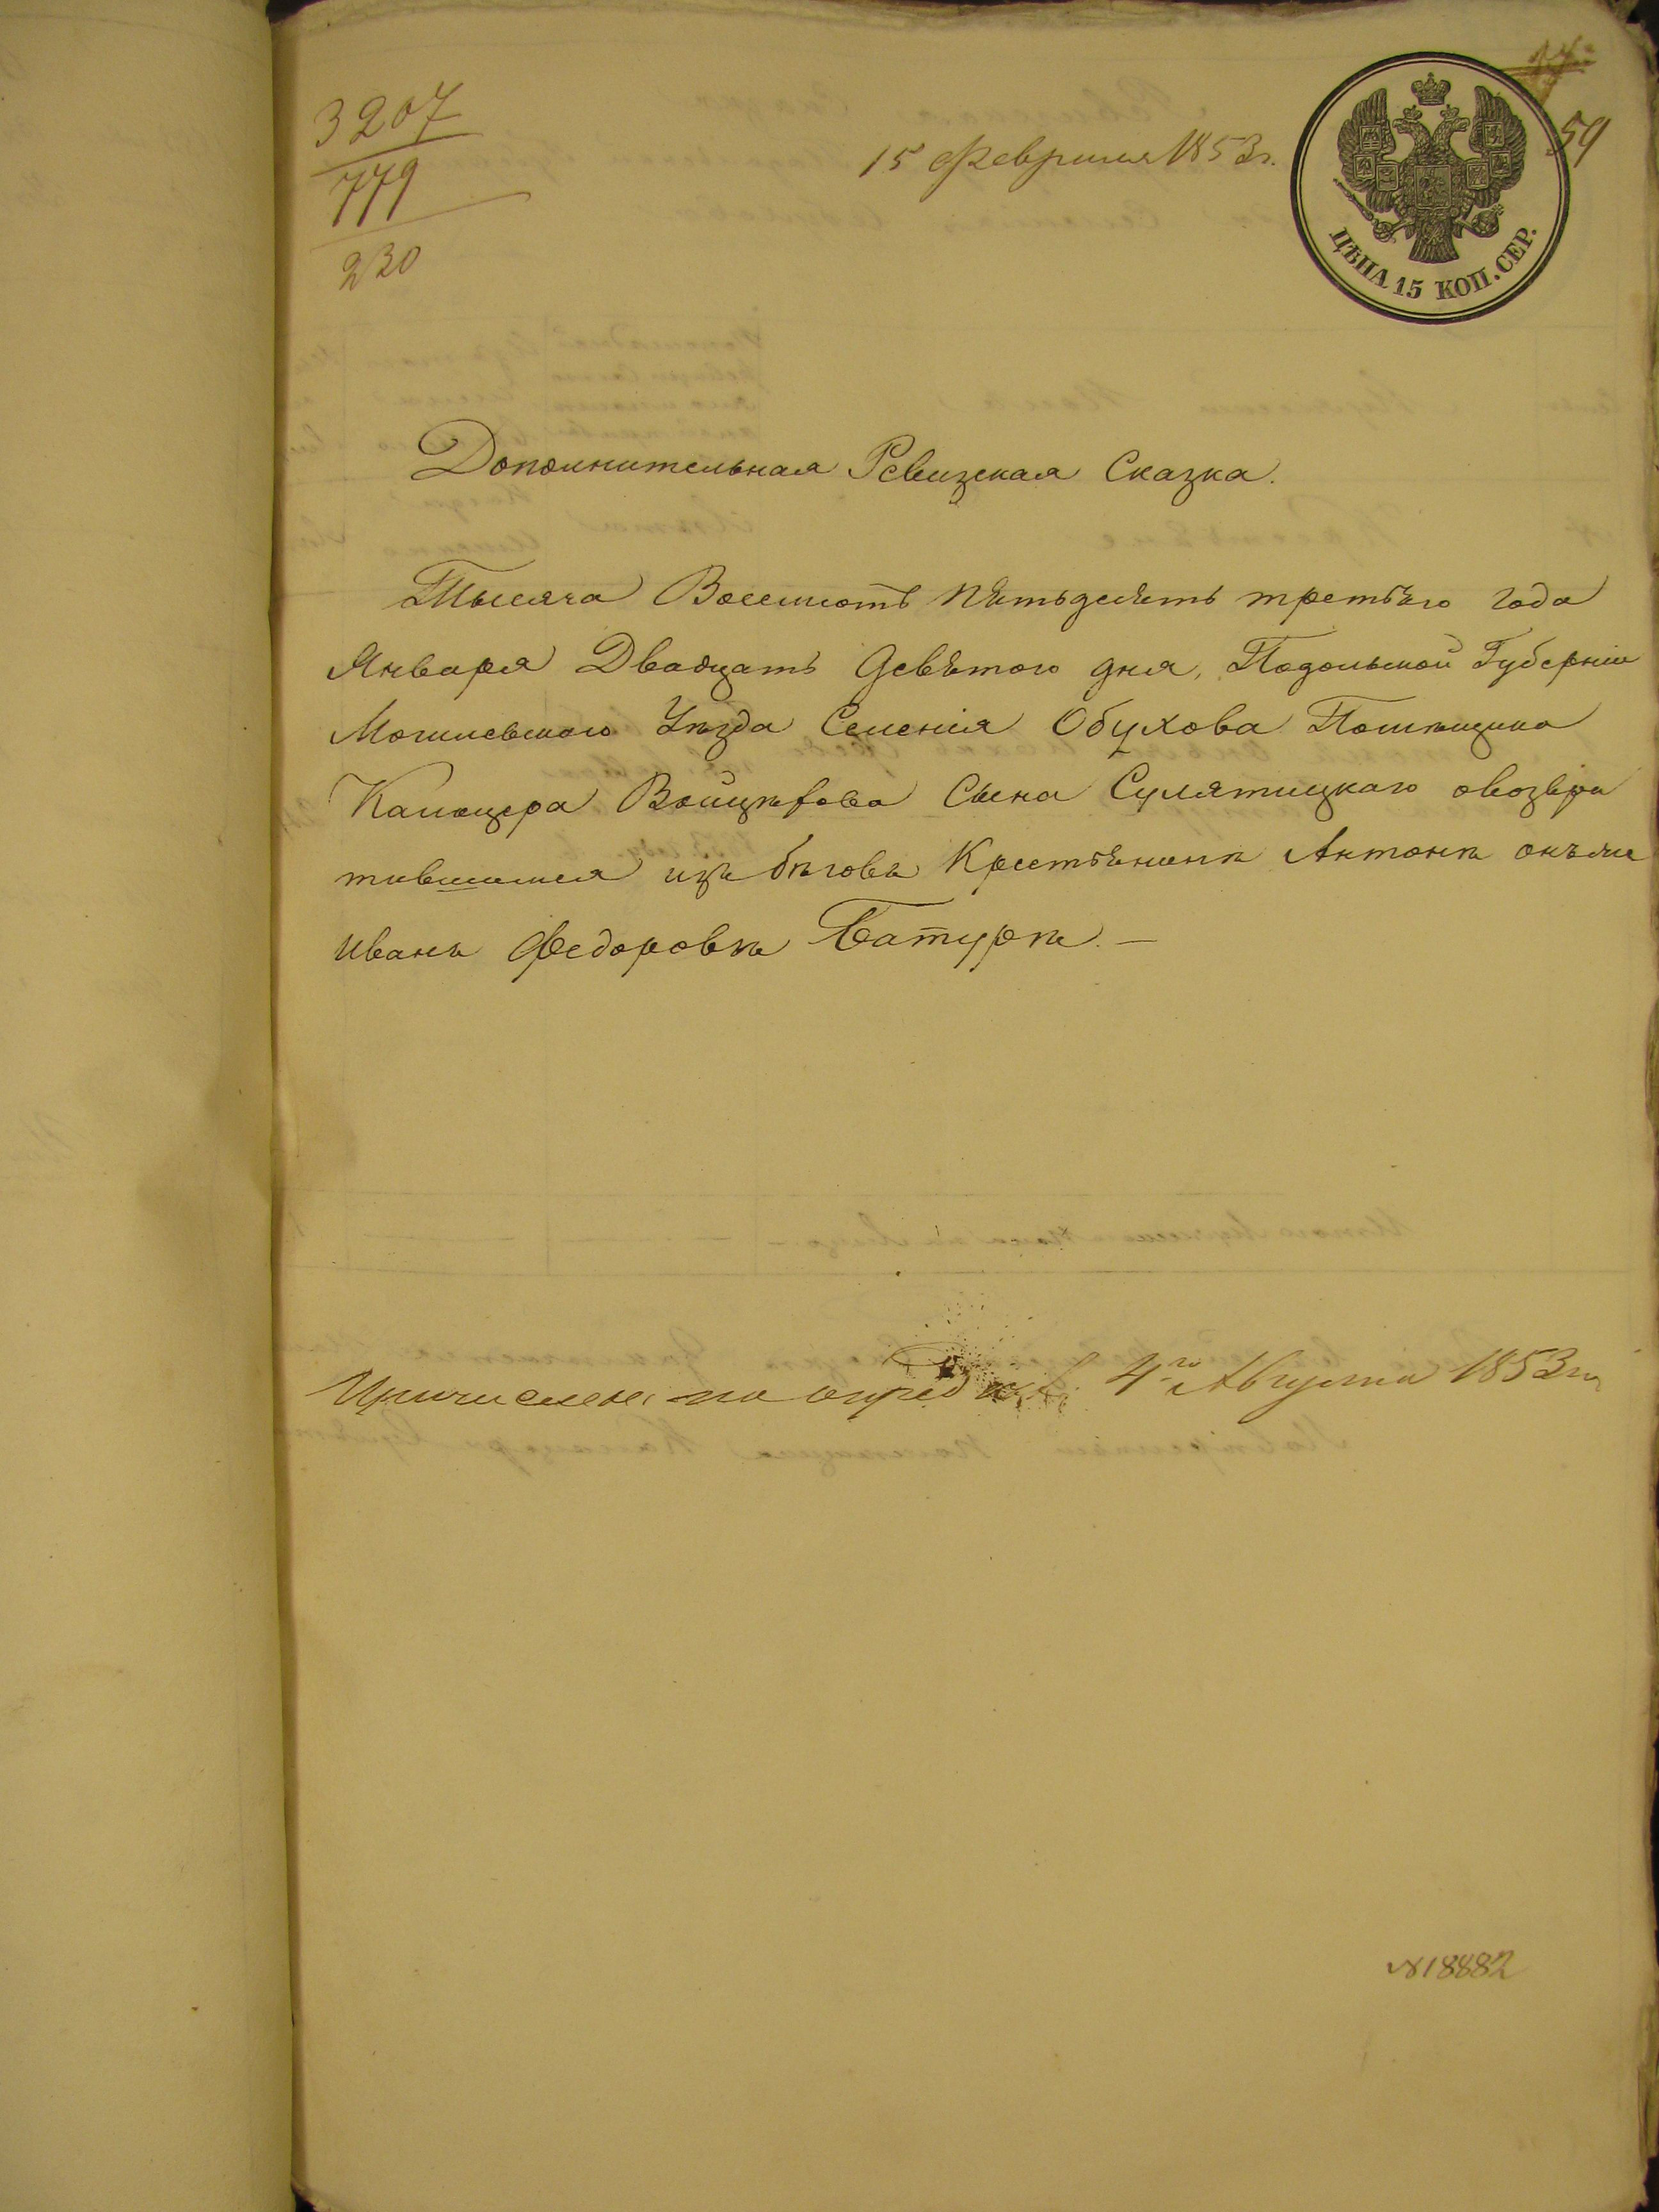 3207
779
230
15 февраля 1853 г.
59
ЦѢНА 15 КОП. СЕР.
Дополнительная Ревизская Сказка.
Тысяча Восемьсотъ пѣтьдесѣтъ третьѣго года
Января Двадцать девѣтого дня, Подольской Губерніи
Могилевского Уѣзда Селенія Обухова Помѣщика
Каспера Войцѣхова Сына Сулятицкаго овозвра
тившимся изъ бѣговъ Крестьѣнинѣ Антонѣ онъ же
Иванъ Федоровѣ Батурѣ. —
Причисленъ по опред 4го Августа 1853 г.
№18882